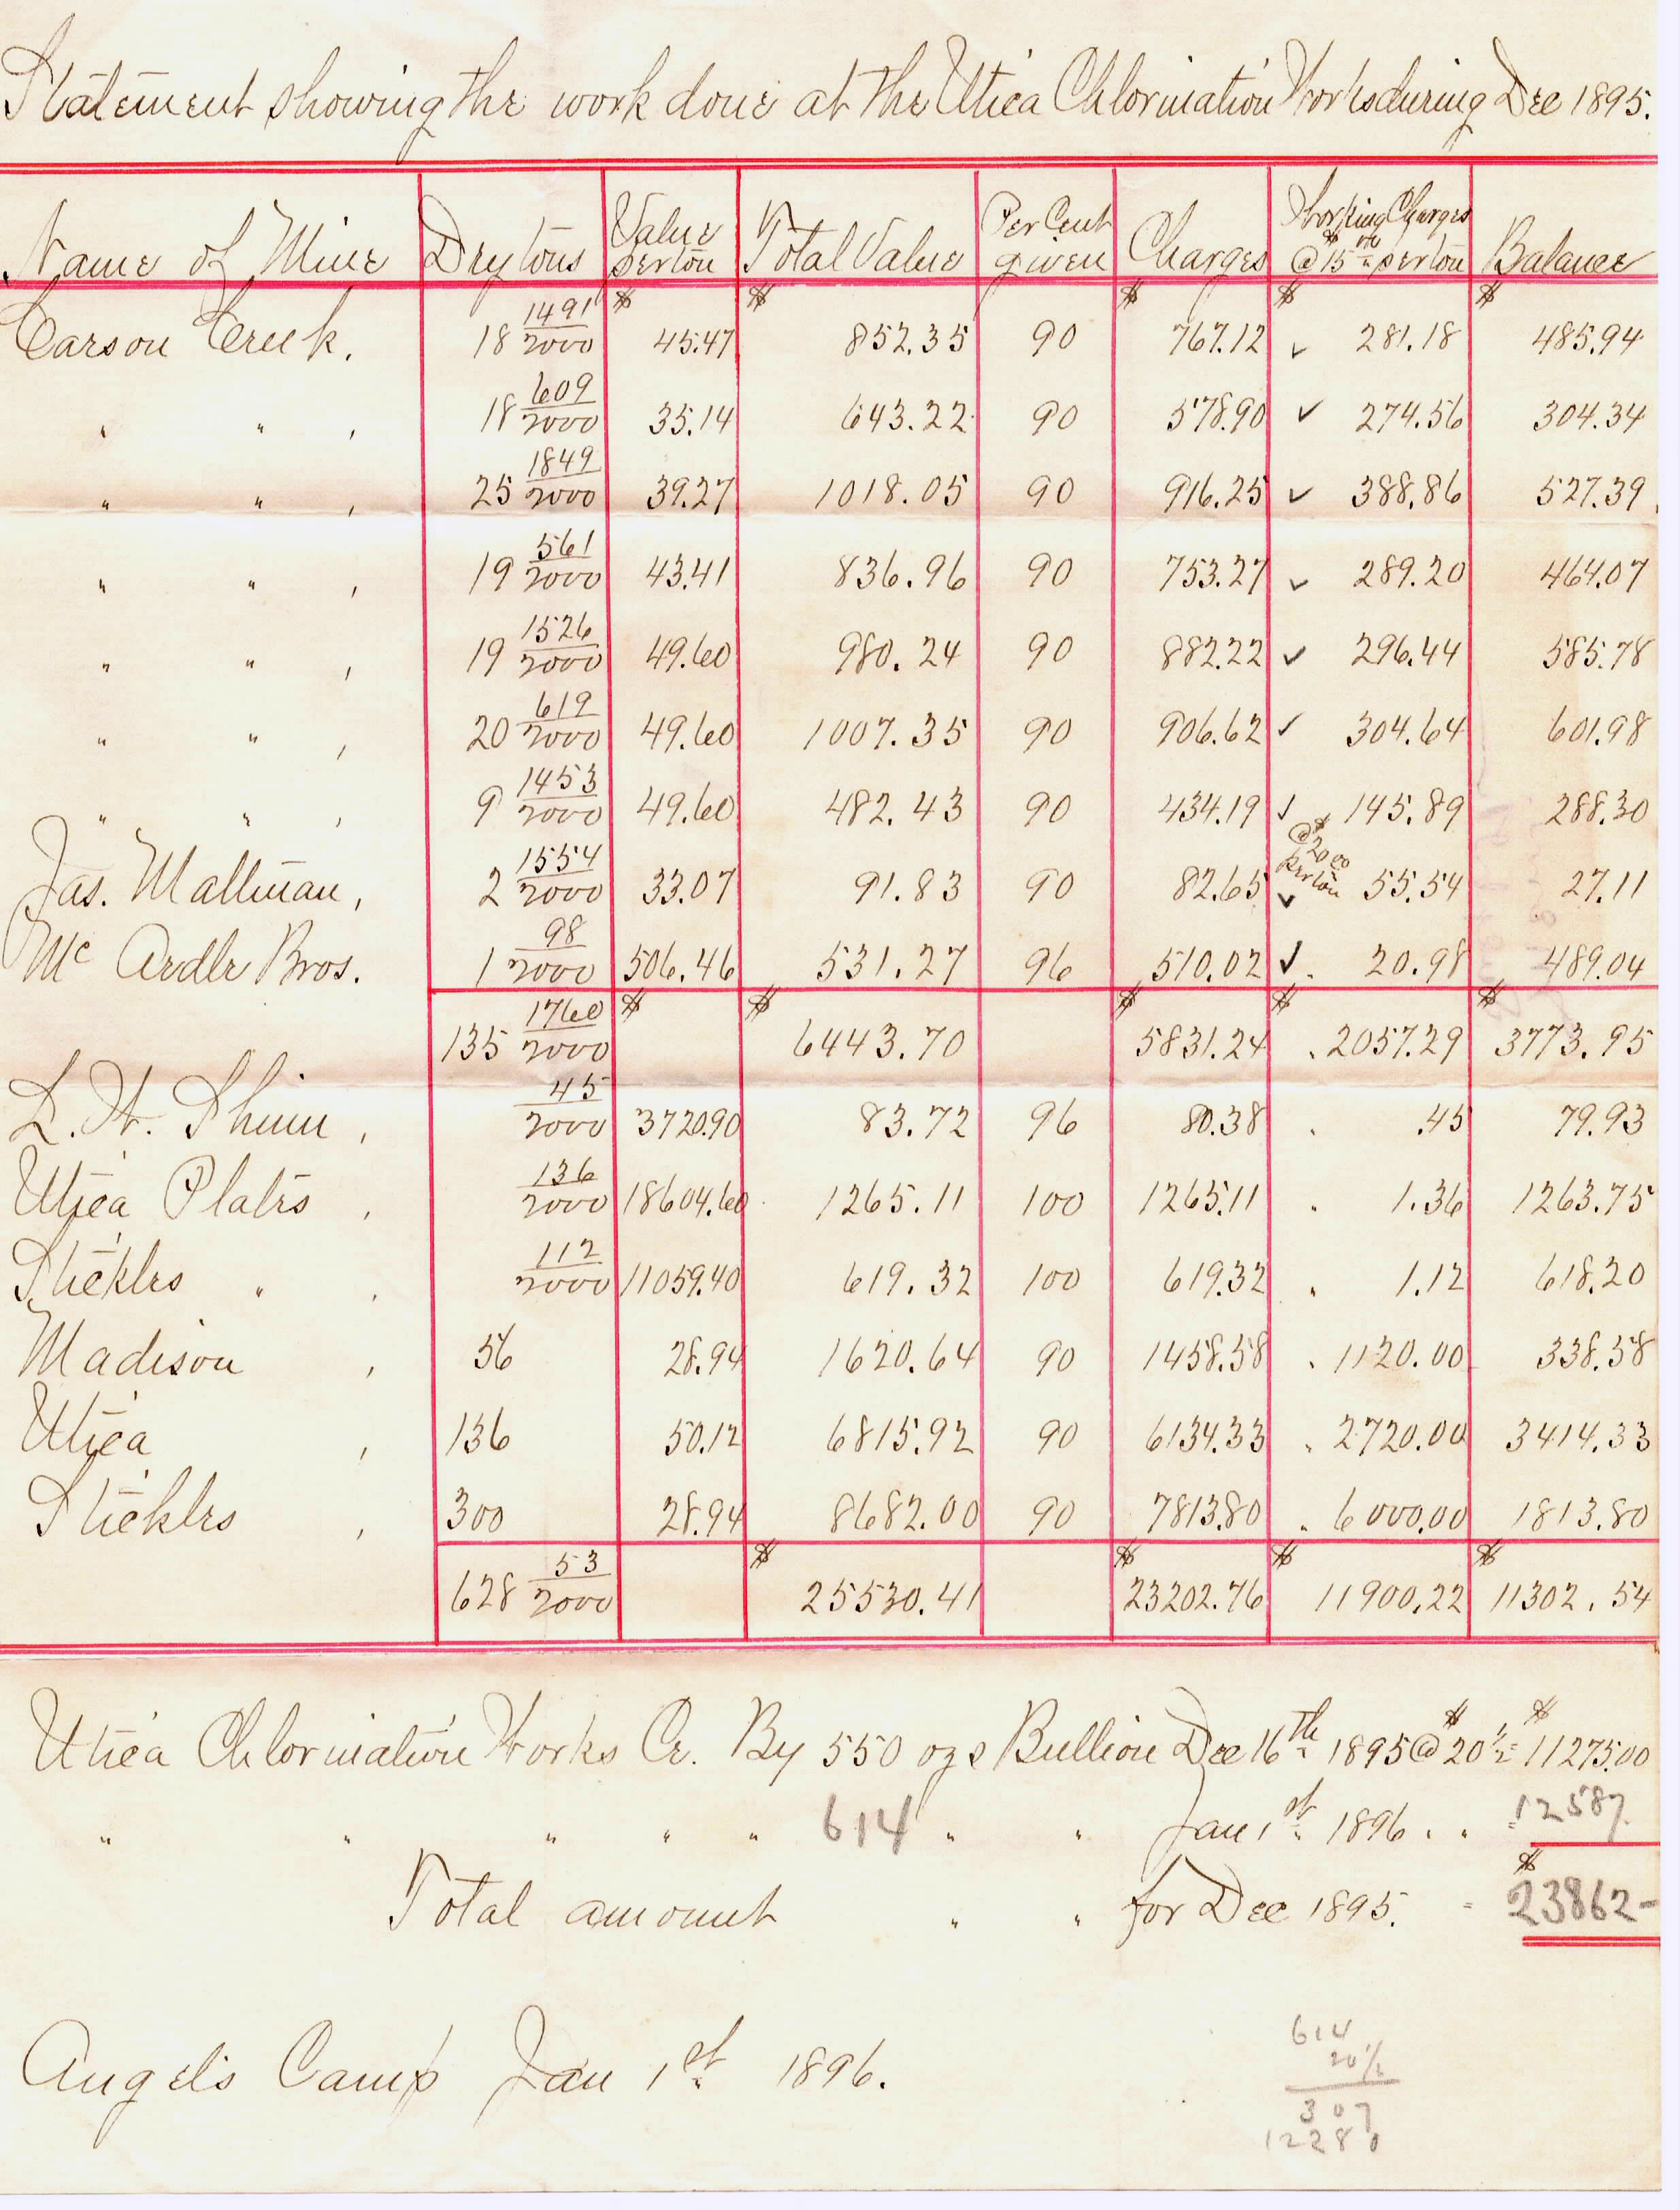 Statement showing the work done at the Utica Chlorination Works during Dec 1895.
Name of Mine Dry tons Value per ton Total Value Per Cent given Charges Working Charges @ $15 00 per ton Balance
Carson Creek, 18 1491/2000 $ 45.47 $ 852.35 90 $ 767.12 ✓ $ 281.18 $ 485.94
" " , 18 609/2000 35.14 643.22 90 578.90 ✓ 274.56 304.34
" " , 25 1849/2000 39.27 1018.05 90 916.25 ✓ 388.86 527.39
" " , 19 561/2000 43.41 836.96 90 753.27 ✓ 289.20 464.07
" " , 19 1526/2000 49.60 980.24 90 882.22 ✓ 296.44 585.78
" " , 20 619/2000 49.60 1007.35 90 906.62 ✓ 304.64 601.98
" " , 9 1453/2000 49.60 482.43 90 434.19 ✓ 145.89 288.30
Jas. Mallman, 2 1554/2000 33.07 91.83 90 82.65 ✓ @ $20 00 per ton 55.54 27.11
Mc Ardle Bros. 1 98/2000 506.46 531.27 96 510.02 ✓ 20.98 489.04
135 1760/2000 $ $ 6443.70 $ 5831.24 $ 2057.29 $ 3773.95
L. W. Shinn, 45/2000 3720.90 83.72 96 80.38 .45 79.93
Utica Plates, 136/2000 18604.60 1265.11 100 1265.11 1.36 1263.75
Stickles " , 112/2000 11059.40 619.32 100 619.32 1.12 618.20
Madison , 56 28.94 1620.64 90 1458.58 1120.00 338.58
Utica , 136 50.12 6815.92 90 6134.33 2720.00 3414.33
Stickles , 300 28.94 8682.00 90 7813.80 6000.00 1813.80
628 53/2000 $ 25530.41 $ 23202.76 $ 11900.22 $ 11302.54
Utica Chlorination Works Cr. By 550 ozs Bullion Dec 16th 1895 @ $20 1/2 = $11275.00
" " " " " 614 " " Jan 1st 1896 . . = 12587.
Total amount " " for Dec 1895. = $23862-
Angels Camp Jan 1st 1896.
614
20 1/2
307
12280